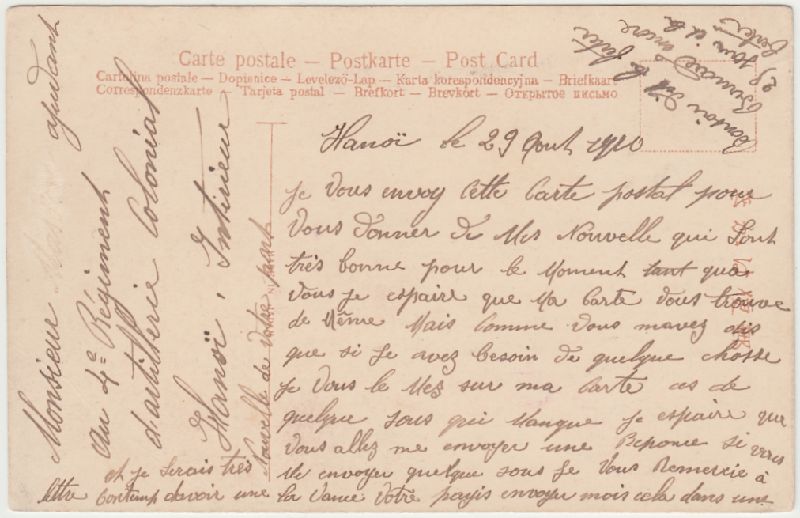 Carte postale — Postkarte — Post Card
Cartolina postale — Dopisnice — Levelező-Lap — Karta korespondencyjna — Briefkaart
Correspondenzkarte — Tarjeta postal — Brefkort — Brevkort — Открытое письмо
Monsieur ajudant
au 4e Régiment
d'artillerie Colonial
Hanoï, Intérieur
Hanoï le 29 Aout 1910
Je Vous envoy Cette Carte postal pour
Vous donner de Mes Nouvelle qui Sont
très bonne pour le Moment tant qua
Vous je espaire que Ma Carte Vous trouve
de Même Mais Comme Vous mavez dis
que si Je avez besoin de quelque chosse
Je Vous le Mez sur ma Carte de
quelque sous qui Manque je espaire que
Vous allez me envoyer une Reponce si
envoyer quelque sous Je Vous Remercie à
la Vance Votre payis envoyer mois cela dans une
lettre et je serais très
Contemp davoir une
Nouvelle de votre part